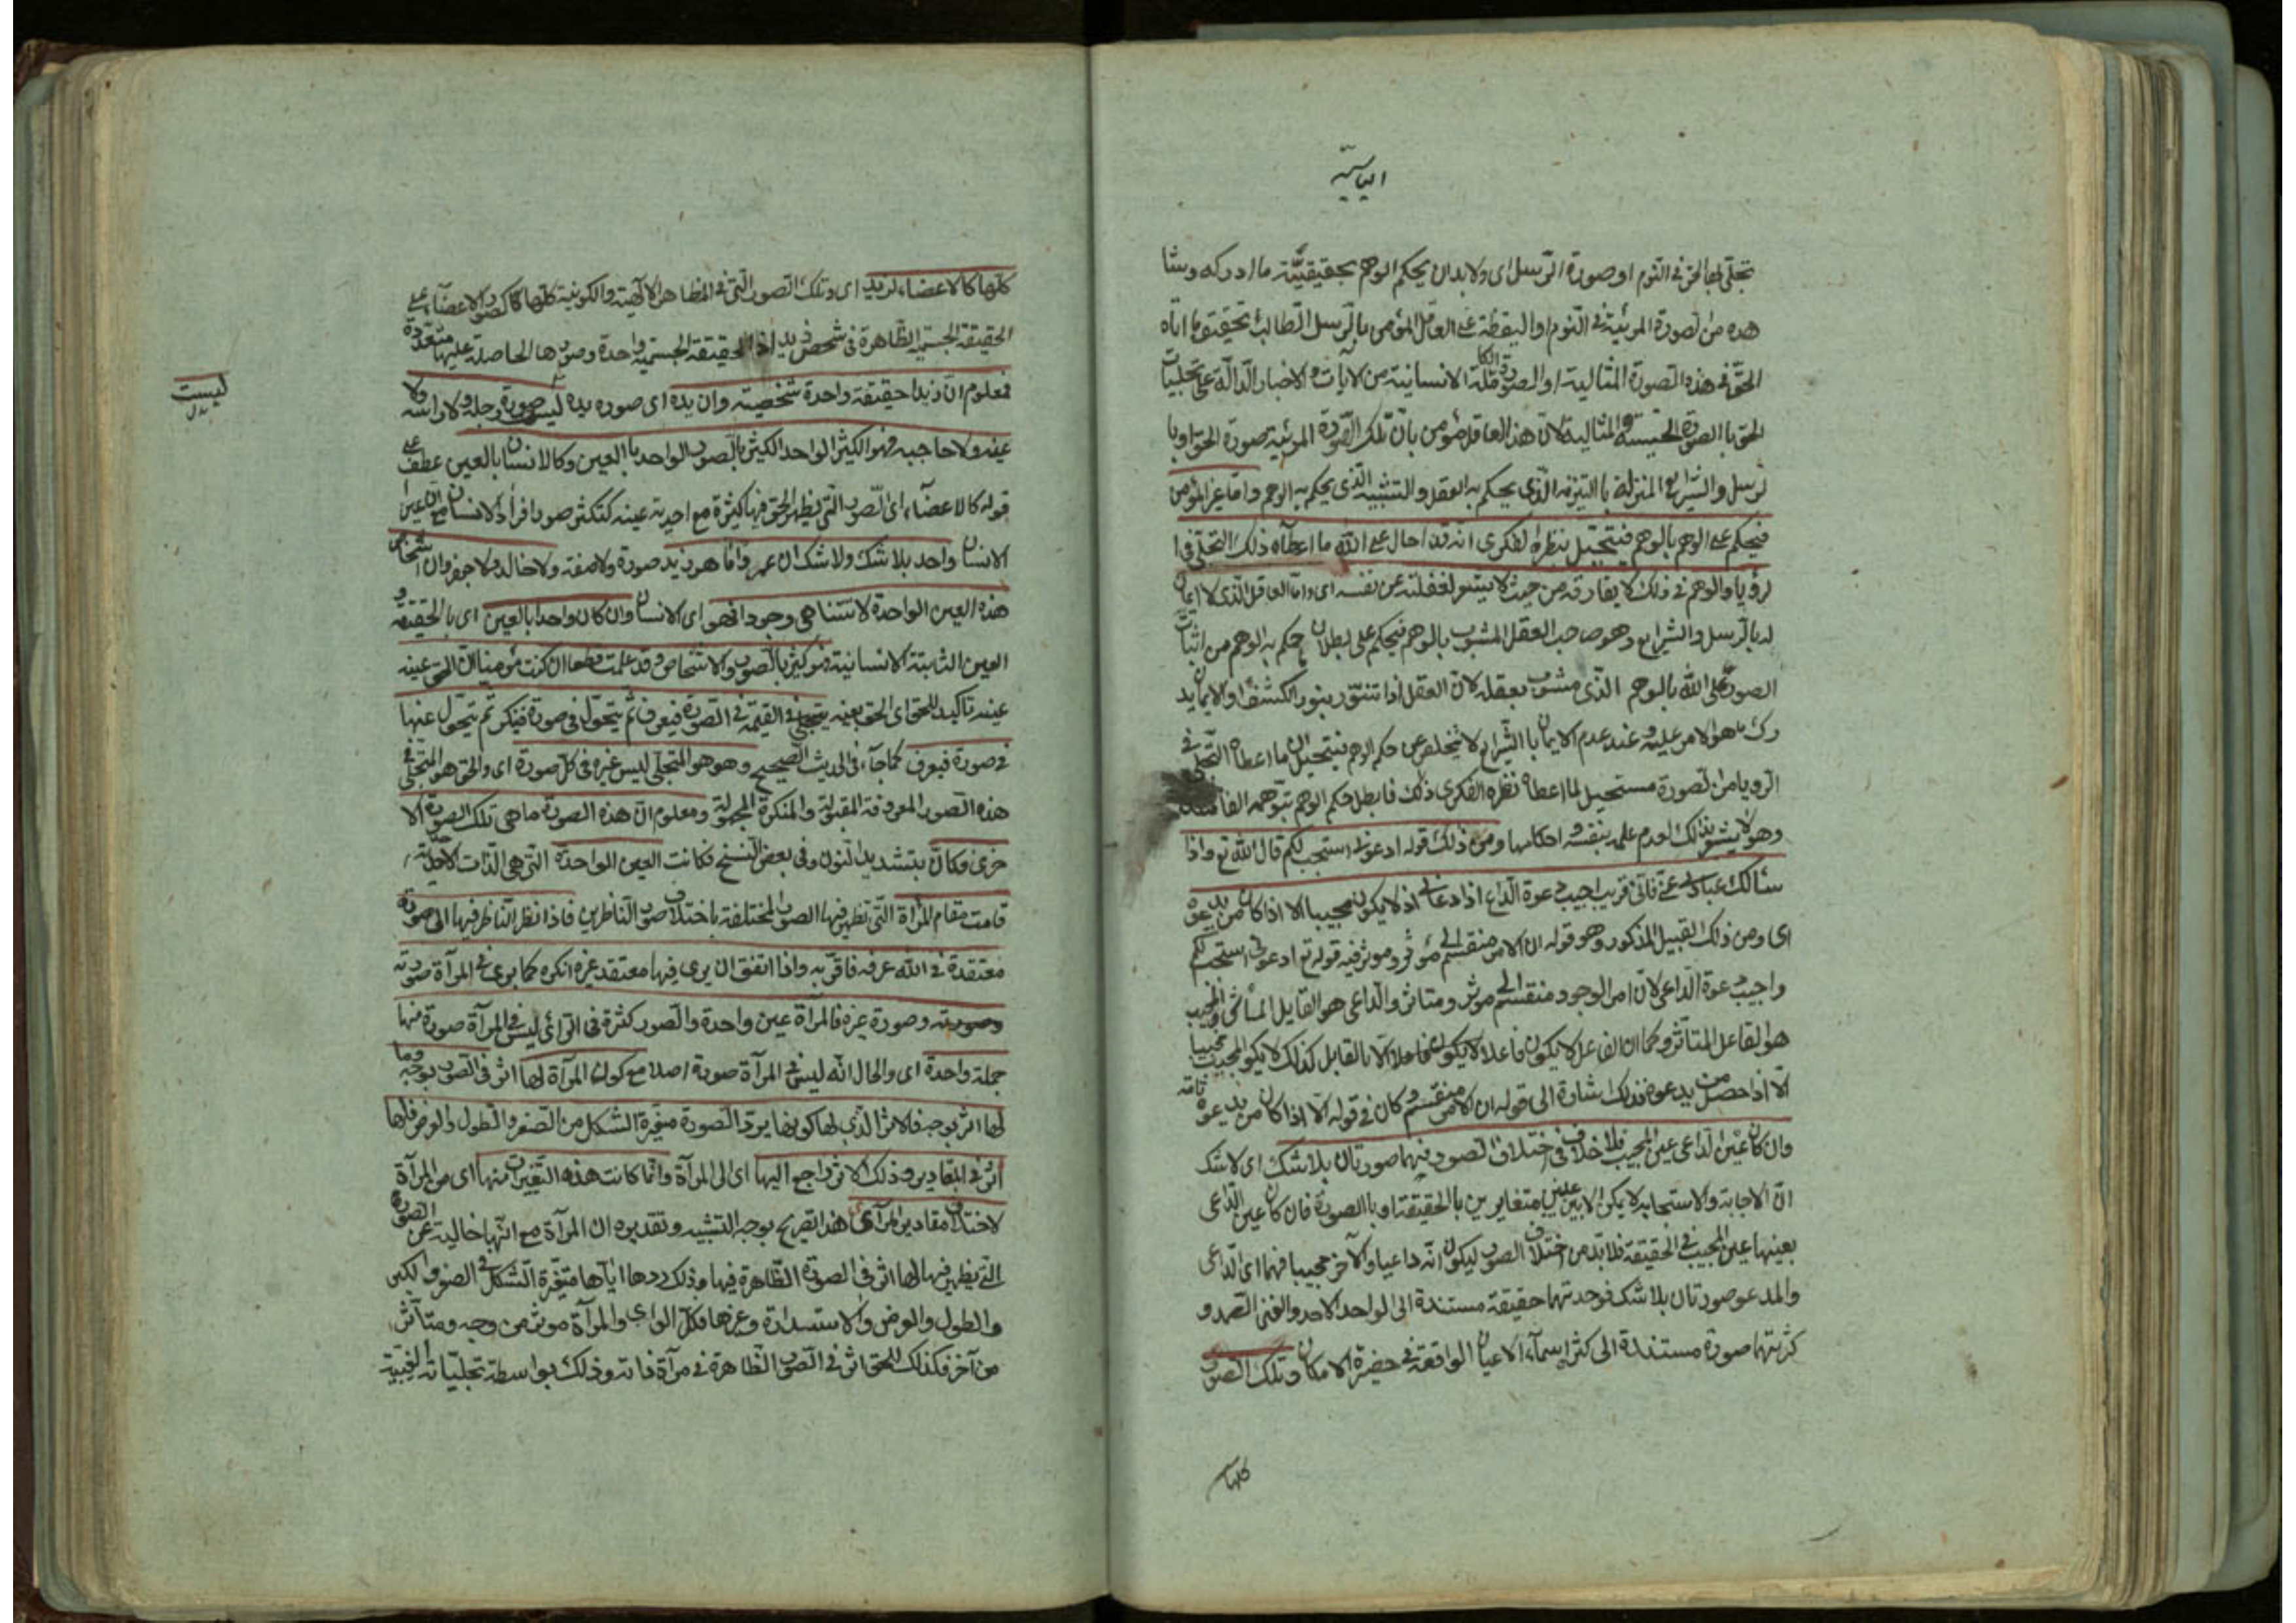 الياسية
تجلّى لها الحق في النوم او صورة الرسل اى ولا بد ان يحكم الوهم بحقيقيّة ما ادركه وشا
هده من الصورة المرئية في النوم او اليقظة على العاقل المؤمن بالرسل الطالب تحقيق ما اتاه
الحقّ في هذه الصورة المثالية او الصورة الكاملة الانسانية من الآيات والاخبار الدالّة على تجليات
الحق با الصورة الحسية والمثالية لان هذا العاقل مؤمن بان تلك الصورة المرئية صورة الحق او با
لرسل والشرايع المنزلة با التنزيه الذى يحكم به العقل والتشبيه الذى يحكم به الوهم واما غير المؤمن
فيحكم على الوهم بالوهم فيتخيّل بنظره الفكرى انه قد احال على الله ما اعطاه ذلك التجلى في ا
لرؤيا والوهم في ذلك لا يفارقه من حيث لا يشعر لغفلته عن نفسه اى واما العاقل الذى لا ايمان
له بالرسل والشرايع وهو صاحب العقل المشوب بالوهم فيحكم على بطلان ما حكم به الوهم من اثبات
الصورة على الله بالوهم الذى مشوب بعقله لان العقل اذا تنوّر بنور الكشف او الايمان يد
رك ما هو الامر عليه وعند عدم الايمان با الشرايع لا يتخلص عن حكم الوهم فيتخيل ان ما اعطاه التجلّى في
الرويا من الصورة مستحيل لما اعطاه نظره الفكرى ذلك فابطل حكم الوهم بتوهمه الفاسد
وهو لا يشعر بذلك لعدم علمه بنفسه واحكامها ومن ذلك قوله ادعونى استجب لكم قال الله تع واذا
سألك عبادى عنّى فانّى قريب اجيب دعوة الداع اذا دعان اذ لا يكون مجيبا الا اذا كان من يدعوه
اى ومن ذلك القبيل المذكور وهو قوله ان الامر منقسم الى مؤثر وموثر فيه قوله تع ادعونى استجب لكم
واجيب دعوة الداعى لان امر الوجود منقسم الى موثر ومتاثر والداعى هو القابل المتأثر والمجيب
هو الفاعل المتأثر وكما ان الفاعل لا يكون فاعلا الا بالقابل كذلك لا يكون المجيب مجيبا
الّا اذا حصل من يدعوه فذلك اشارة الى قوله ان الامر منقسم وكان في قوله الا اذا كان من يدعوه تامة
وان كان عين الداعى عين المجيب فلا خلاف في اختلاف الصور فهما صورتان بلا شك اى لا شك
انّ الاجابة والاستجابة لا يمكن الا بين عينين متغايرين با الحقيقة او با الصورة فان كان عين الداعى
بعينها عين المجيب في الحقيقة فلا بدّ من اختلاف الصور ليكون انّه داعيا والآخر مجيبا فهما اى الداعى
والمدعو صورتان بلا شك فوحدتهما حقيقة مستندة الى الواحد الاحد والغنى الصمد و
كثرتهما صورة مستندة الى كثر اسماء الاعيان الواقعة في حضرة الامكان وتلك الصور
كلها
كلّها كالاعضاء لزيد اى وتلك الصور الّتى في المظاهر الالهية والكونية كلّها كالصور الاعضاء على
الحقيقة الجسمية الظاهرة في شخص زيد اذ الحقيقة الجسمية واحدة وصورها الحاصلة عليها متعدّدة
فمعلوم انّ زيدا حقيقة واحدة شخصية وان يده اى صورة يده ليس صورة رجله ولا راسه ولا
ليست
بدل
عينه ولا حاجبه فهو الكثير الواحد الكثير بالصور الواحد با العين وكالانسان بالعين عطف على
قوله كالاعضاء اى الصور التى يظهر الحق فيها كثيرة مع احدية عينه كتكثر صور افراد الانسان مع ان عين
الانسان واحد بلا شك ولا شك ان عمروا ما هو زيد صورة ولا صفة ولا خالد ولا جعفر وان اشخاص
هذه العين الواحدة لا تتناهى وجودا فهو اى الانسان وان كان واحدا بالعين اى بالحقيقة و
العين الثابتة الانسانية فهو كثير بالصور والاشخاص وقد علمت قطعا ان كنت مؤمنا ان الحق عينه
عينه تاكيد للحق اى الحق بعينه يتجلّى في القيمة في الصورة فيعرف ثم يتحوّل في صورة فينكر ثم يتحول عنها
في صورة فيعرف كما جآء في الحديث الصحيح وهو هو المتجلّى ليس غيره في كل صورة اى والحق هو المتجلّى في
هذه الصور المعروفة المقبولة والمنكرة المجهولة ومعلوم ان هذه الصورة ما هى تلك الصورة الا
خرى فكانّ بتشديد النون وفي بعض النسخ فكانت العين الواحدة التى هى الذات الاحدية
قامت مقام المرآة التى تظهر فيها الصور المختلفة باختلاف صور الناظرين فاذا نظر الناظر فيها الى صورة
معتقده في الله عرفه فاقرّ به واذا اتفق ان يرى فيها معتقد غيره انكره كما يرى في المرآة صورته
وصورته وصورة غيره فالمرآة عين واحدة والصور كثيرة في الرائى ليس في المرآة صورة منها
جملة واحدة اى والحال انه ليس في المرآة صورة اصلا مع كون المرآة لها اثر في الصور بوجه وما
لها اثر بوجه فالاثر الذى لها كونها يردّ الصورة متغيّرة الشكل من الصغر والطول والعرض فلها
اثر في المقادير وذلك الاثر راجع اليها اى الى المرآة وانّما كانت هذه التغيرات منها اى من المرآة
لاختلاف مقادير المرآى هذا تصريح بوجه التشبيه وتقديره ان المرآة مع انّها خالية عن الصورة
التى يظهر فيها لها اثر في الصورة الظاهرة فيها وذلك ردها اياها متغيّرة الشكل في الصغر والكبر
والطول والعرض والاستدارة وغيرها فكل الراى والمرآة موثر من وجه ومتأثر
من آخر فكذلك للحق اثر في الصور الظاهرة في مرآة ذاته وذلك بواسطة تجلّياته الغيبية